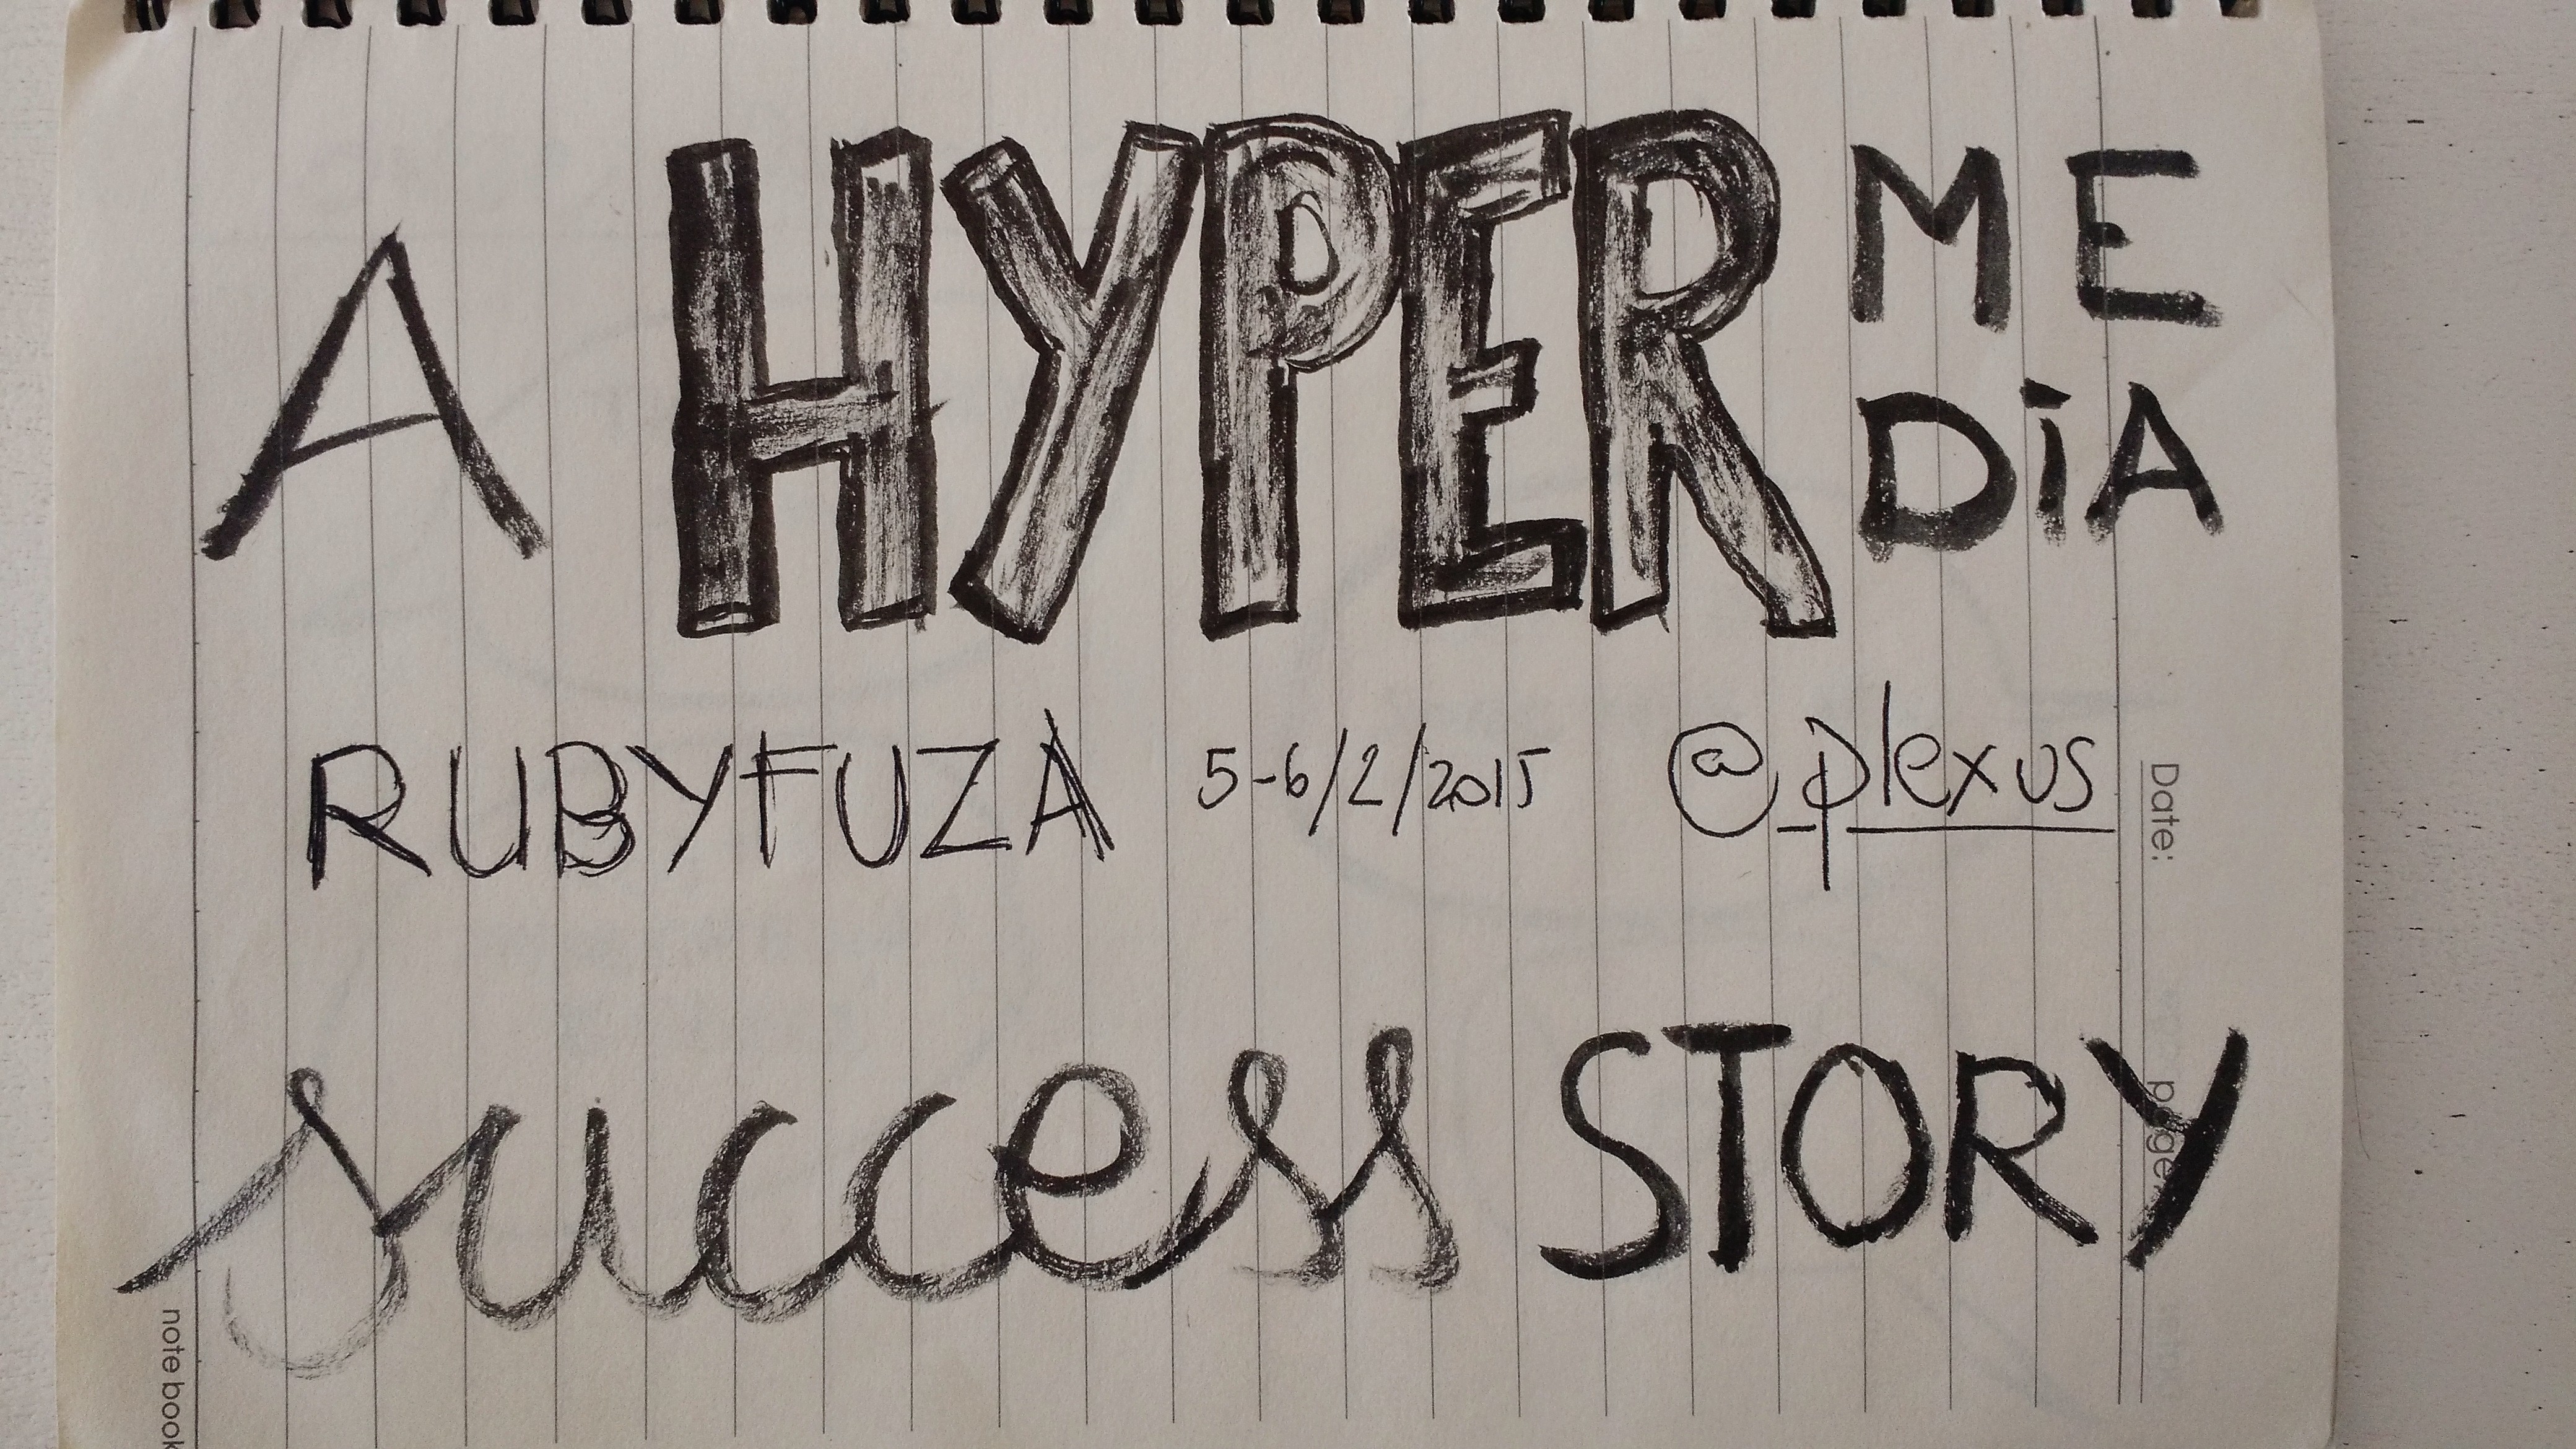 A HYPER ME
DIA
RUBYFUZA 5-6/2/2015 @plexus
success STORY
Date:
page:
note book